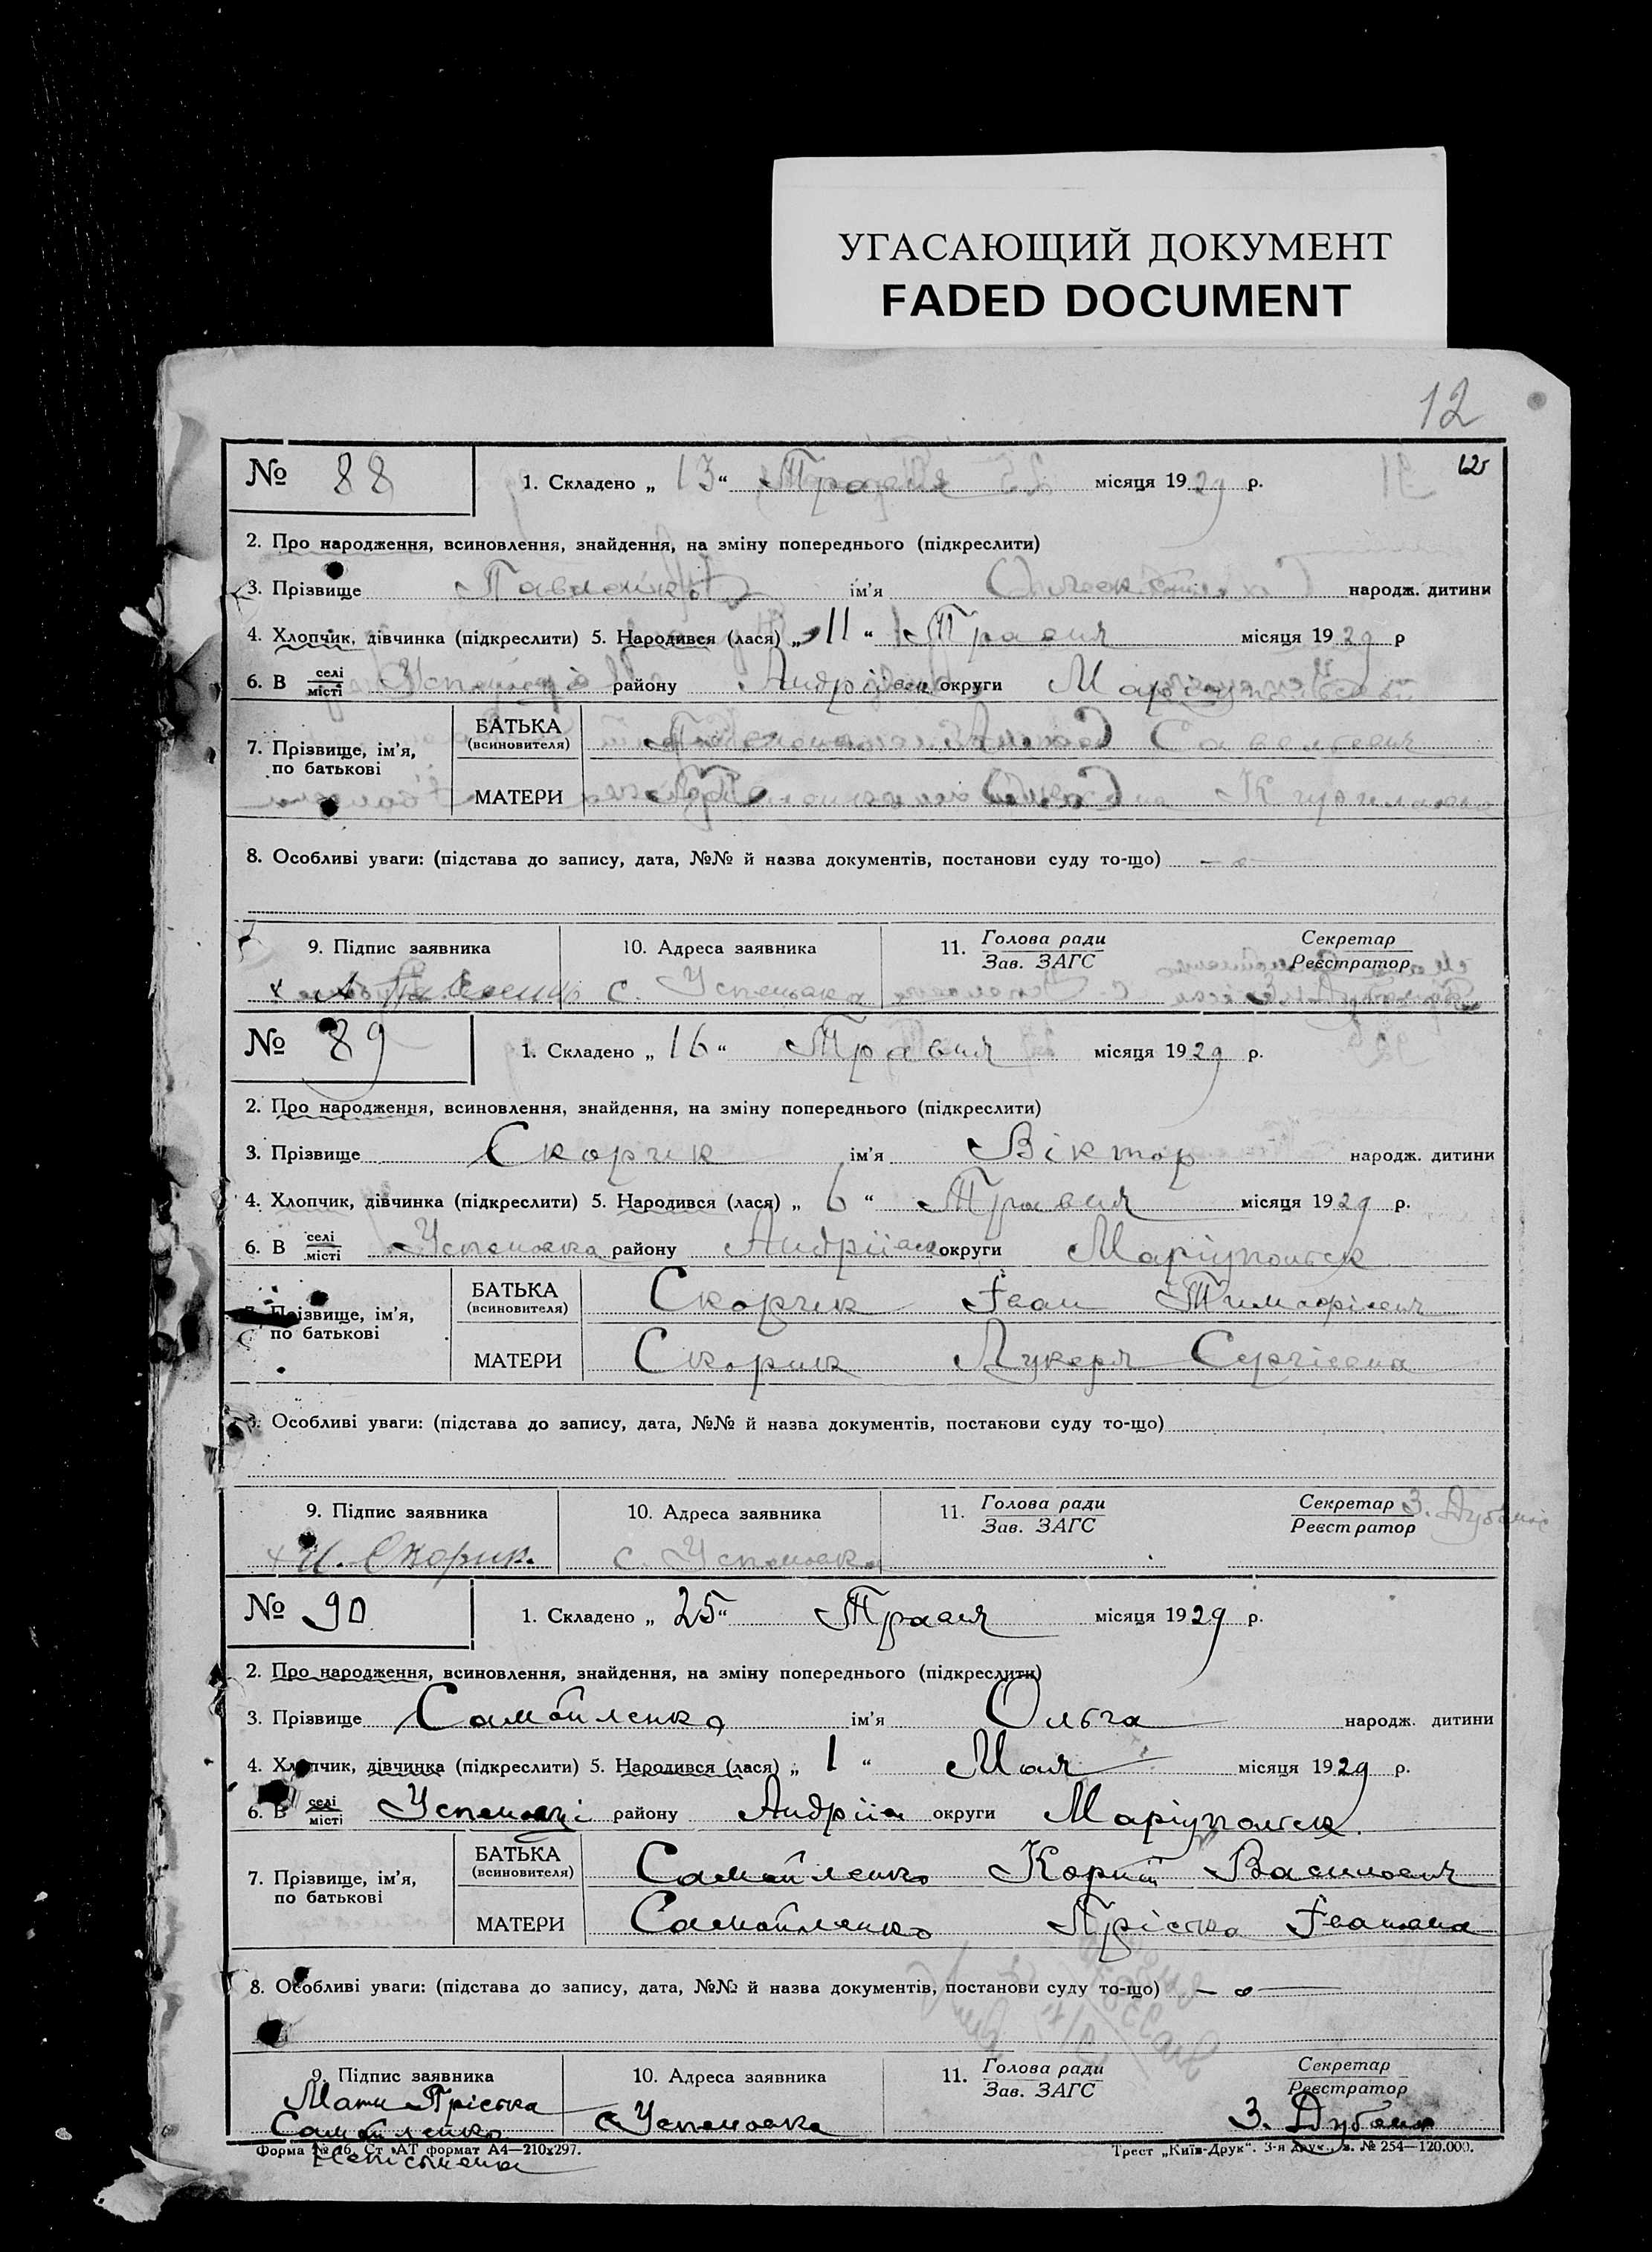 УГАСАЮЩИЙ ДОКУМЕНТ
FADED DOCUMENT
12
12
№ 88 1. Складено „ 13 “ Травня місяця 1929 р.
2. Про народження, всиновлення, знайдення, на зміну попереднього (підкреслити)
3. Прізвище ім'я народж. дитини
4. Хлопчик, дівчинка (підкреслити) 5. Народився (лася) „ 11 “ Травня місяця 1929 р
6. В селі місті району Андріївск округи
7. Прізвище, ім'я, по батькові
БАТЬКА (всиновителя) Савелєвич
МАТЕРИ
8. Особливі уваги: (підстава до запису, дата, №№ й назва документів, постанови суду то-що) —
9. Підпис заявника 10. Адреса заявника 11. Голова ради Зав. ЗАГС Секретар Реєстратор
с. Успеновка
№ 89 1. Складено „ 16 “ Травня місяця 1929 р.
2. Про народження, всиновлення, знайдення, на зміну попереднього (підкреслити)
3. Прізвище Скорчик ім'я Віктор народж. дитини
4. Хлопчик, дівчинка (підкреслити) 5. Народився (лася) „ 6 “ Травня місяця 1929 р.
6. В селі місті Успеновка району Андріівск округи Маріупольск
7. Прізвище, ім'я, по батькові
БАТЬКА (всиновителя) Скорчик Іван Тимофієвич
МАТЕРИ Скорик Лукеря Сергієвна
8. Особливі уваги: (підстава до запису, дата, №№ й назва документів, постанови суду то-що)
9. Підпис заявника 10. Адреса заявника 11. Голова ради Зав. ЗАГС Секретар Реєстратор
И. Скорик. с. Успеновка
№ 90 1. Складено „ 25 “ Травня місяця 1929 р.
2. Про народження, всиновлення, знайдення, на зміну попереднього (підкреслити)
3. Прізвище Самойленко ім'я Ольга народж. дитини
4. Хлопчик, дівчинка (підкреслити) 5. Народився (лася) „ 1 “ Мая місяця 1929 р.
6. В селі місті Успеновці району Андріів округи Маріупольск.
7. Прізвище, ім'я, по батькові
БАТЬКА (всиновителя) Самойленко Корній Василович
МАТЕРИ Самойленко Пріська Івановна
8. Особливі уваги: (підстава до запису, дата, №№ й назва документів, постанови суду то-що) —
9. Підпис заявника 10. Адреса заявника 11. Голова ради Зав. ЗАГС Секретар Реєстратор
Мати Пріська
Самойленко с Успеновка З.
Форма № 26. Ст. АТ формат А4—210x297. Трест „Київ-Друк“. 3-я друк., з. № 254—120.000.
неписьмена